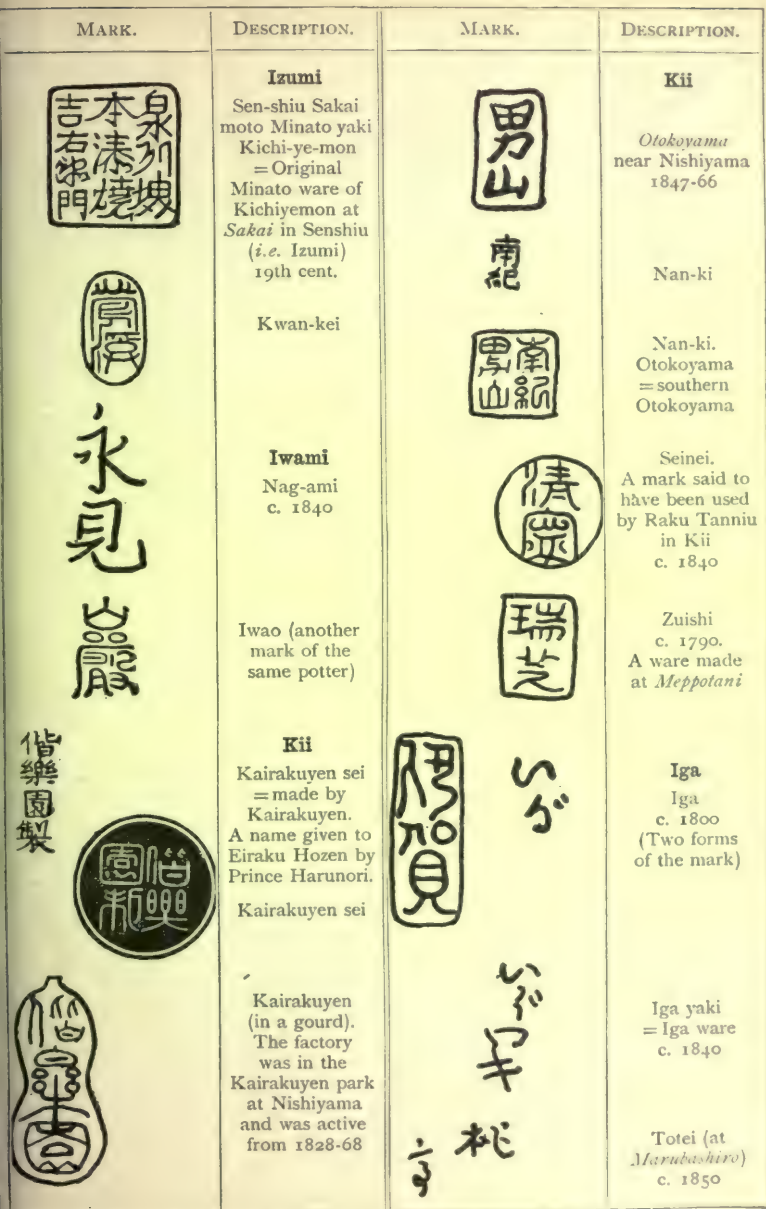 MARK.
DESCRIPTION.
MARK.
DESCRIPTION.
泉州堺
本湊燒
吉右衛門
Izumi
Sen-shiu Sakai
moto Minato yaki
Kichi-ye-mon
= Original
Minato ware of
Kichiyemon at
Sakai in Senshiu
(i.e. Izumi)
19th cent.
Kwan-kei
永見
Iwami
Nag-ami
c. 1840
巖
Iwao (another
mark of the
same potter)
偕樂園製
Kii
Kairakuyen sei
= made by
Kairakuyen.
A name given to
Eiraku Hozen by
Prince Harunori.
偕樂
園制
Kairakuyen sei
偕樂園
Kairakuyen
(in a gourd).
The factory
was in the
Kairakuyen park
at Nishiyama
and was active
from 1828-68
男山
Kii
Otokoyama
near Nishiyama
1847-66
南紀
Nan-ki
南紀
男山
Nan-ki.
Otokoyama
= southern
Otokoyama
清寧
Seinei.
A mark said to
have been used
by Raku Tanniu
in Kii
c. 1840
瑞芝
Zuishi
c. 1790.
A ware made
at Meppotani
伊賀
いが
Iga
Iga
c. 1800
(Two forms
of the mark)
いがヤキ
Iga yaki
= Iga ware
c. 1840
桃
Totei (at
Marubashiro)
c. 1850